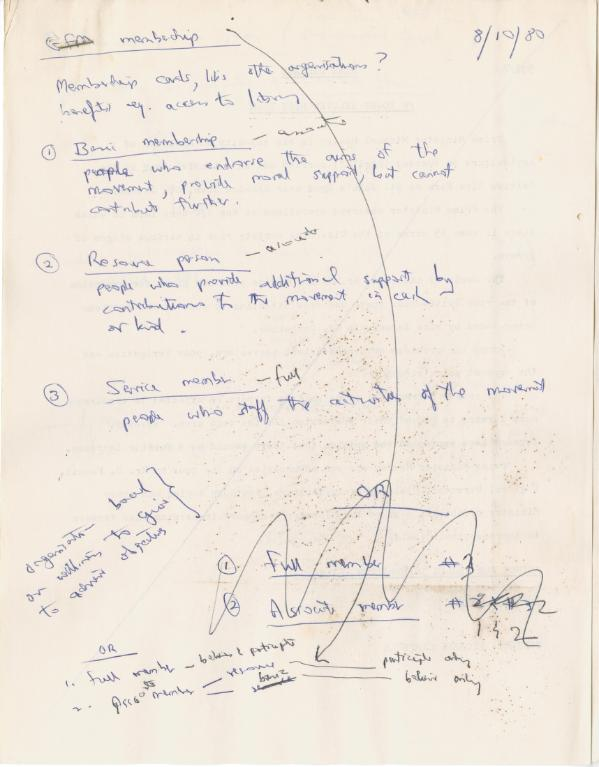 membership
8/10/80
Membership cards, like other organisations?
benefits eg. access to library
① Basic membership — associate
people who endorse the aims of the
movement, provide moral support, but cannot
contribute further.
② Resource person — associate
people who provide additional support by
contributions to the movement in cash
or kind.
③ Service member — full
people who staff the activities of the movement
organisation based
or willingness to
to achieve objectives
OR
① Full member #3
② Associate member #
1 & 2
OR
1. Full member — believe & participate
2. Assoc member — resource — participate only
basic — believe only